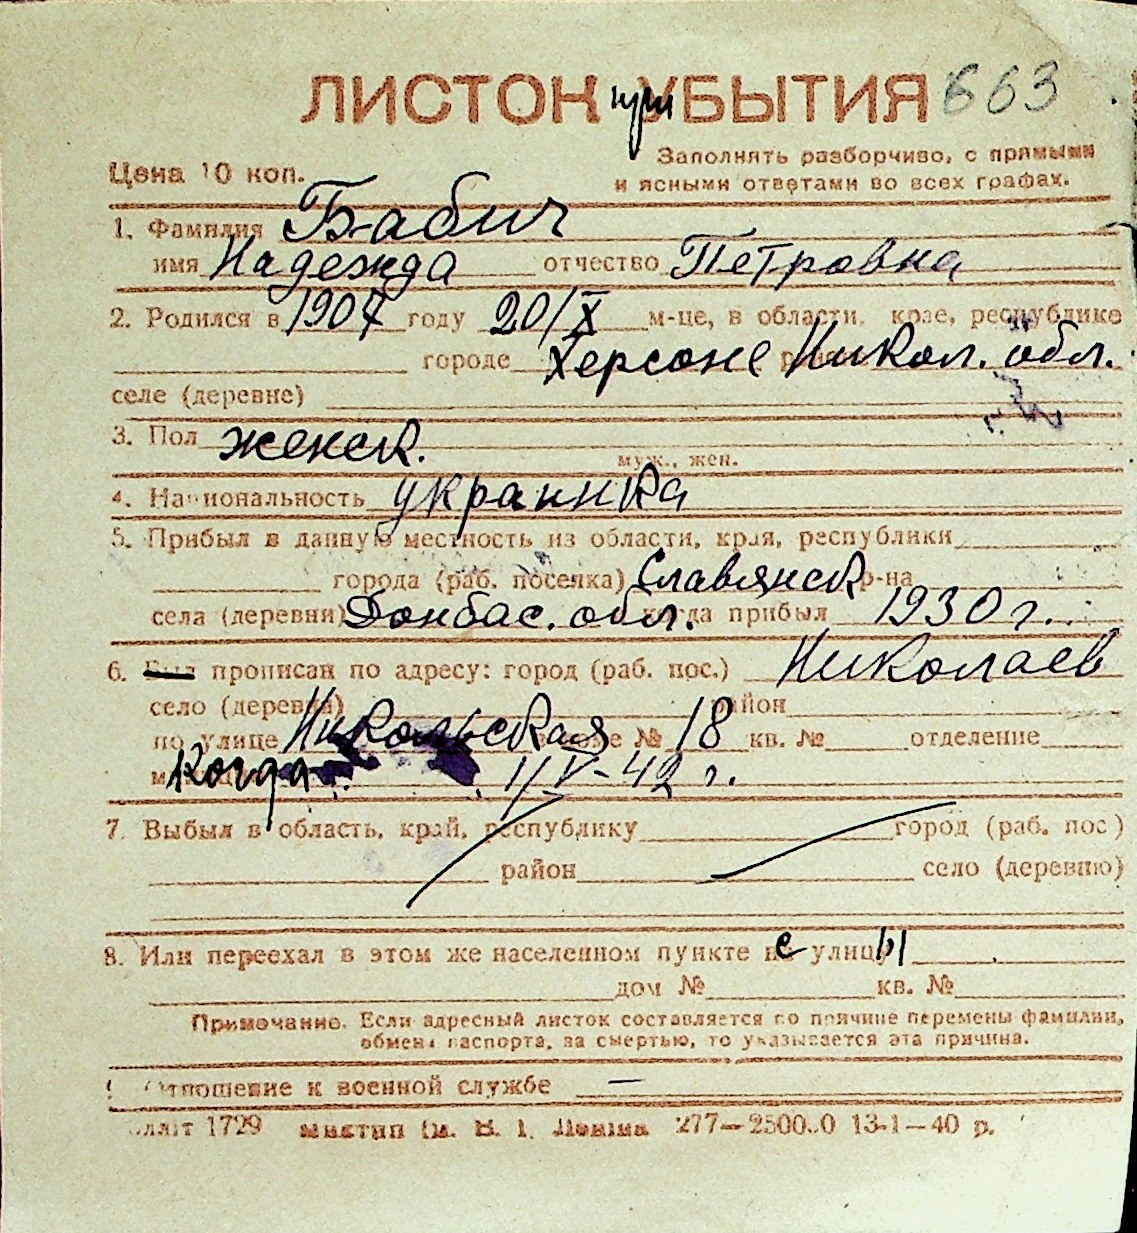 ЛИСТОК при УБЫТИЯ 663
Цена 10 коп.
Заполнять разборчиво, с прямыми
и ясными ответами во всех графах.
1. Фамилия Бабич
имя Надежда отчество Петровна
2. Родился в 1907 году 20/X м-це, в области, крае, республике
городе Херсоне Никол. обл.
селе (деревне)
3. Пол женск.
муж., жен.
4. Национальность украинка
5. Прибыл в данную местность из области, края, республики
города (раб. поселка) Славянск р-на
села (деревни) Донбас. обл. когда прибыл 1930 г.
6. Был прописан по адресу: город (раб. пос.) Николаев
село (деревня) район
по улице Никольская доме № 18 кв. № отделение
Когда 1/V-42 г.
7. Выбыл в область, край, республику город (раб. пос)
район село (деревню)
8. Или переехал в этом же населенном пункте с улицы
дом № кв. №
Примечание. Если адресный листок составляется по причине перемены фамилии,
обмена паспорта, за смертью, то указывается эта причина.
Отношение к военной службе —
1729 им. В. И. Ленина 277—2500.0 13-1—40 р.